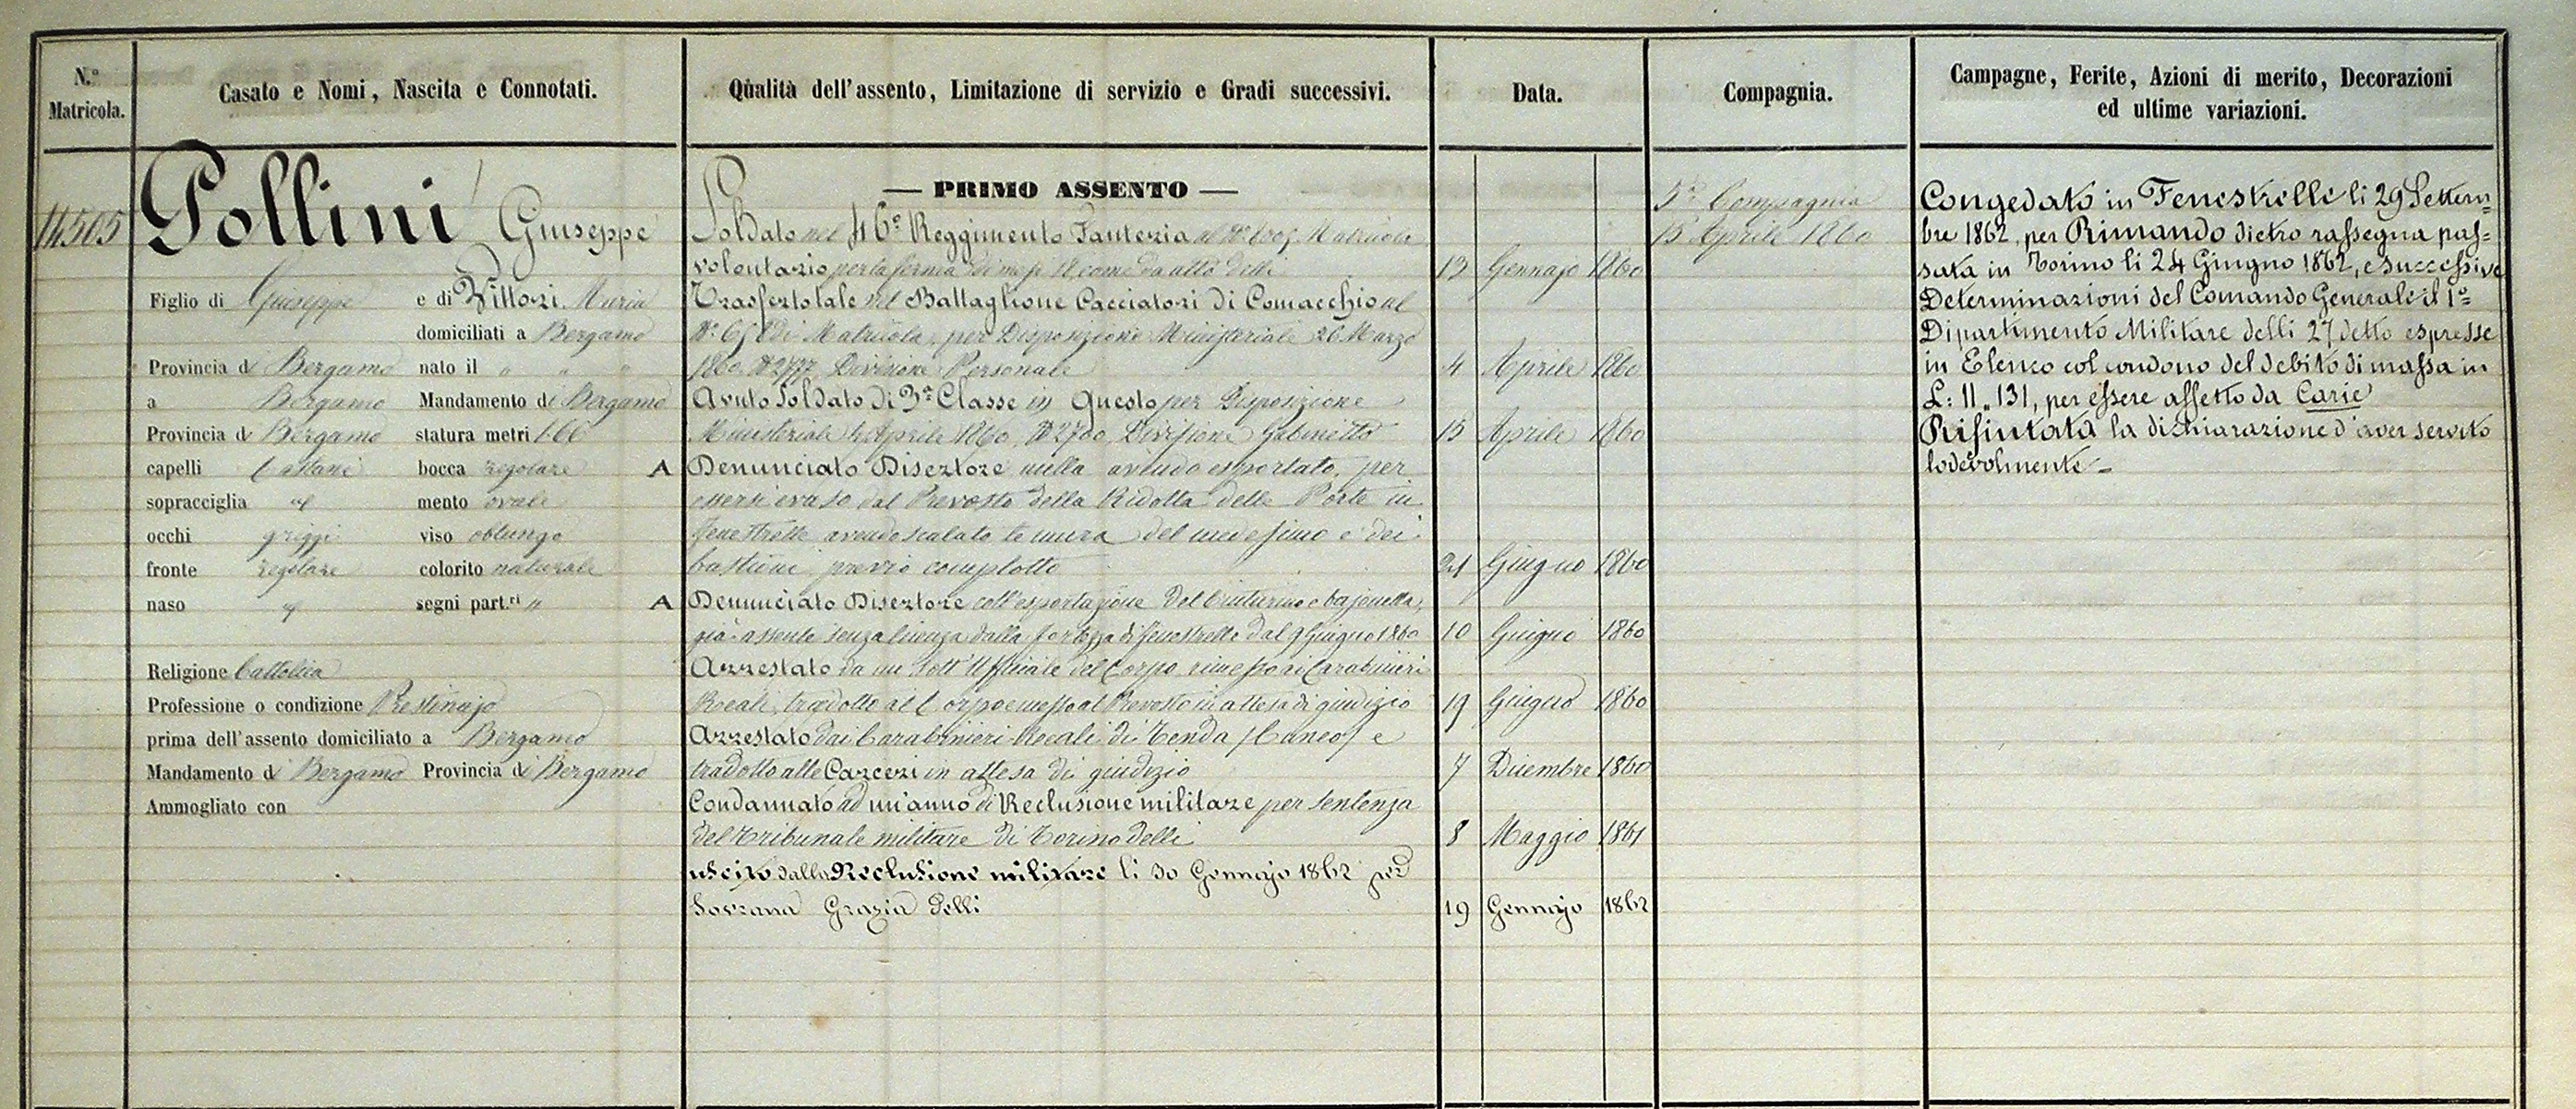 N.º Matricola.
Casato e Nomi, Nascita e Connotati.
Qualità dell'assento, Limitazione di servizio e Gradi successivi.
Data.
Compagnia.
Campagne, Ferite, Azioni di merito, Decorazioni
ed ultime variazioni.
14505
Pollini Giuseppe
Figlio di Giuseppe e di Vittori Maria
domiciliati a Bergamo
Provincia di Bergamo nato il " " "
a Bergamo Mandamento di Bergamo
Provincia di Bergamo statura metri 1.66
capelli Castani bocca regolare
sopracciglia id mento ovale
occhi griggi viso oblungo
fronte regolare colorito naturale
naso id segni part.ri "
Religione Cattolica
Professione o condizione Prestinajo
prima dell'assento domiciliato a Bergamo
Mandamento di Bergamo Provincia di Bergamo
Ammogliato con
— PRIMO ASSENTO —
Soldato nel 46º Reggimento Fanteria al Nº Matricola
volontario per la ferma di mesi 18 come da atto delli 13 Gennajo 1860
Trasferto tale nel Battaglione Cacciatori di Comacchio al
Nº di Matricola, per Disposizione Ministeriale 26 Marzo
1860 Nº 2777 Divisione Personale 4 Aprile 1860
Avuto Soldato di 3ª Classe in Questo per Disposizione
Ministeriale Aprile 1860 Nº 2700 Divisione Gabinetto 15 Aprile 1860
A Denunciato Disertore nulla avendo esportato, per
essersi evaso dal Prevosto della Ridotta delle Porte in
Fenestrelle avendo scalato le mura del medesimo e dei
bastioni previo complotto 21 Giugno 1860
A Denunciato Disertore coll'esportazione del cinturino e bajonetta,
già assente senza licenza dalla fortezza di Fenestrelle dal 9 Giugno 1860 10 Giugno 1860
Arrestato da un Sott'Uffiziale del Corpo rimesso ai Carabinieri
Reali, tradotto al Corpo e messo al Prevosto in attesa di giudizio 19 Giugno 1860
Arrestato dai Carabinieri Reali di Tenda (Cuneo) e
tradotto alle Carceri in attesa di giudizio 7 Dicembre 1860
Condannato ad un'anno di Reclusione militare per sentenza
del Tribunale militare di Torino delli 8 Maggio 1861
uscito dalla Reclusione militare li 30 Gennajo 1862 per
Sovrana Grazia delli 19 Gennajo 1862
5ª Compagnia
15 Aprile 1860
Congedato in Fenestrelle li 29 Settem=
bre 1862, per Rimando dietro rassegna pas=
sata in Torino li 24 Giugno 1862, e successive
Determinazioni del Comando Generale il 1º
Dipartimento Militare delli 27 detto espresse
in Elenco col condono del debito di massa in
L: 11,,131, per essere affetto da Carie
Rifiutata la dichiarazione d'aver servito
lodevolmente –